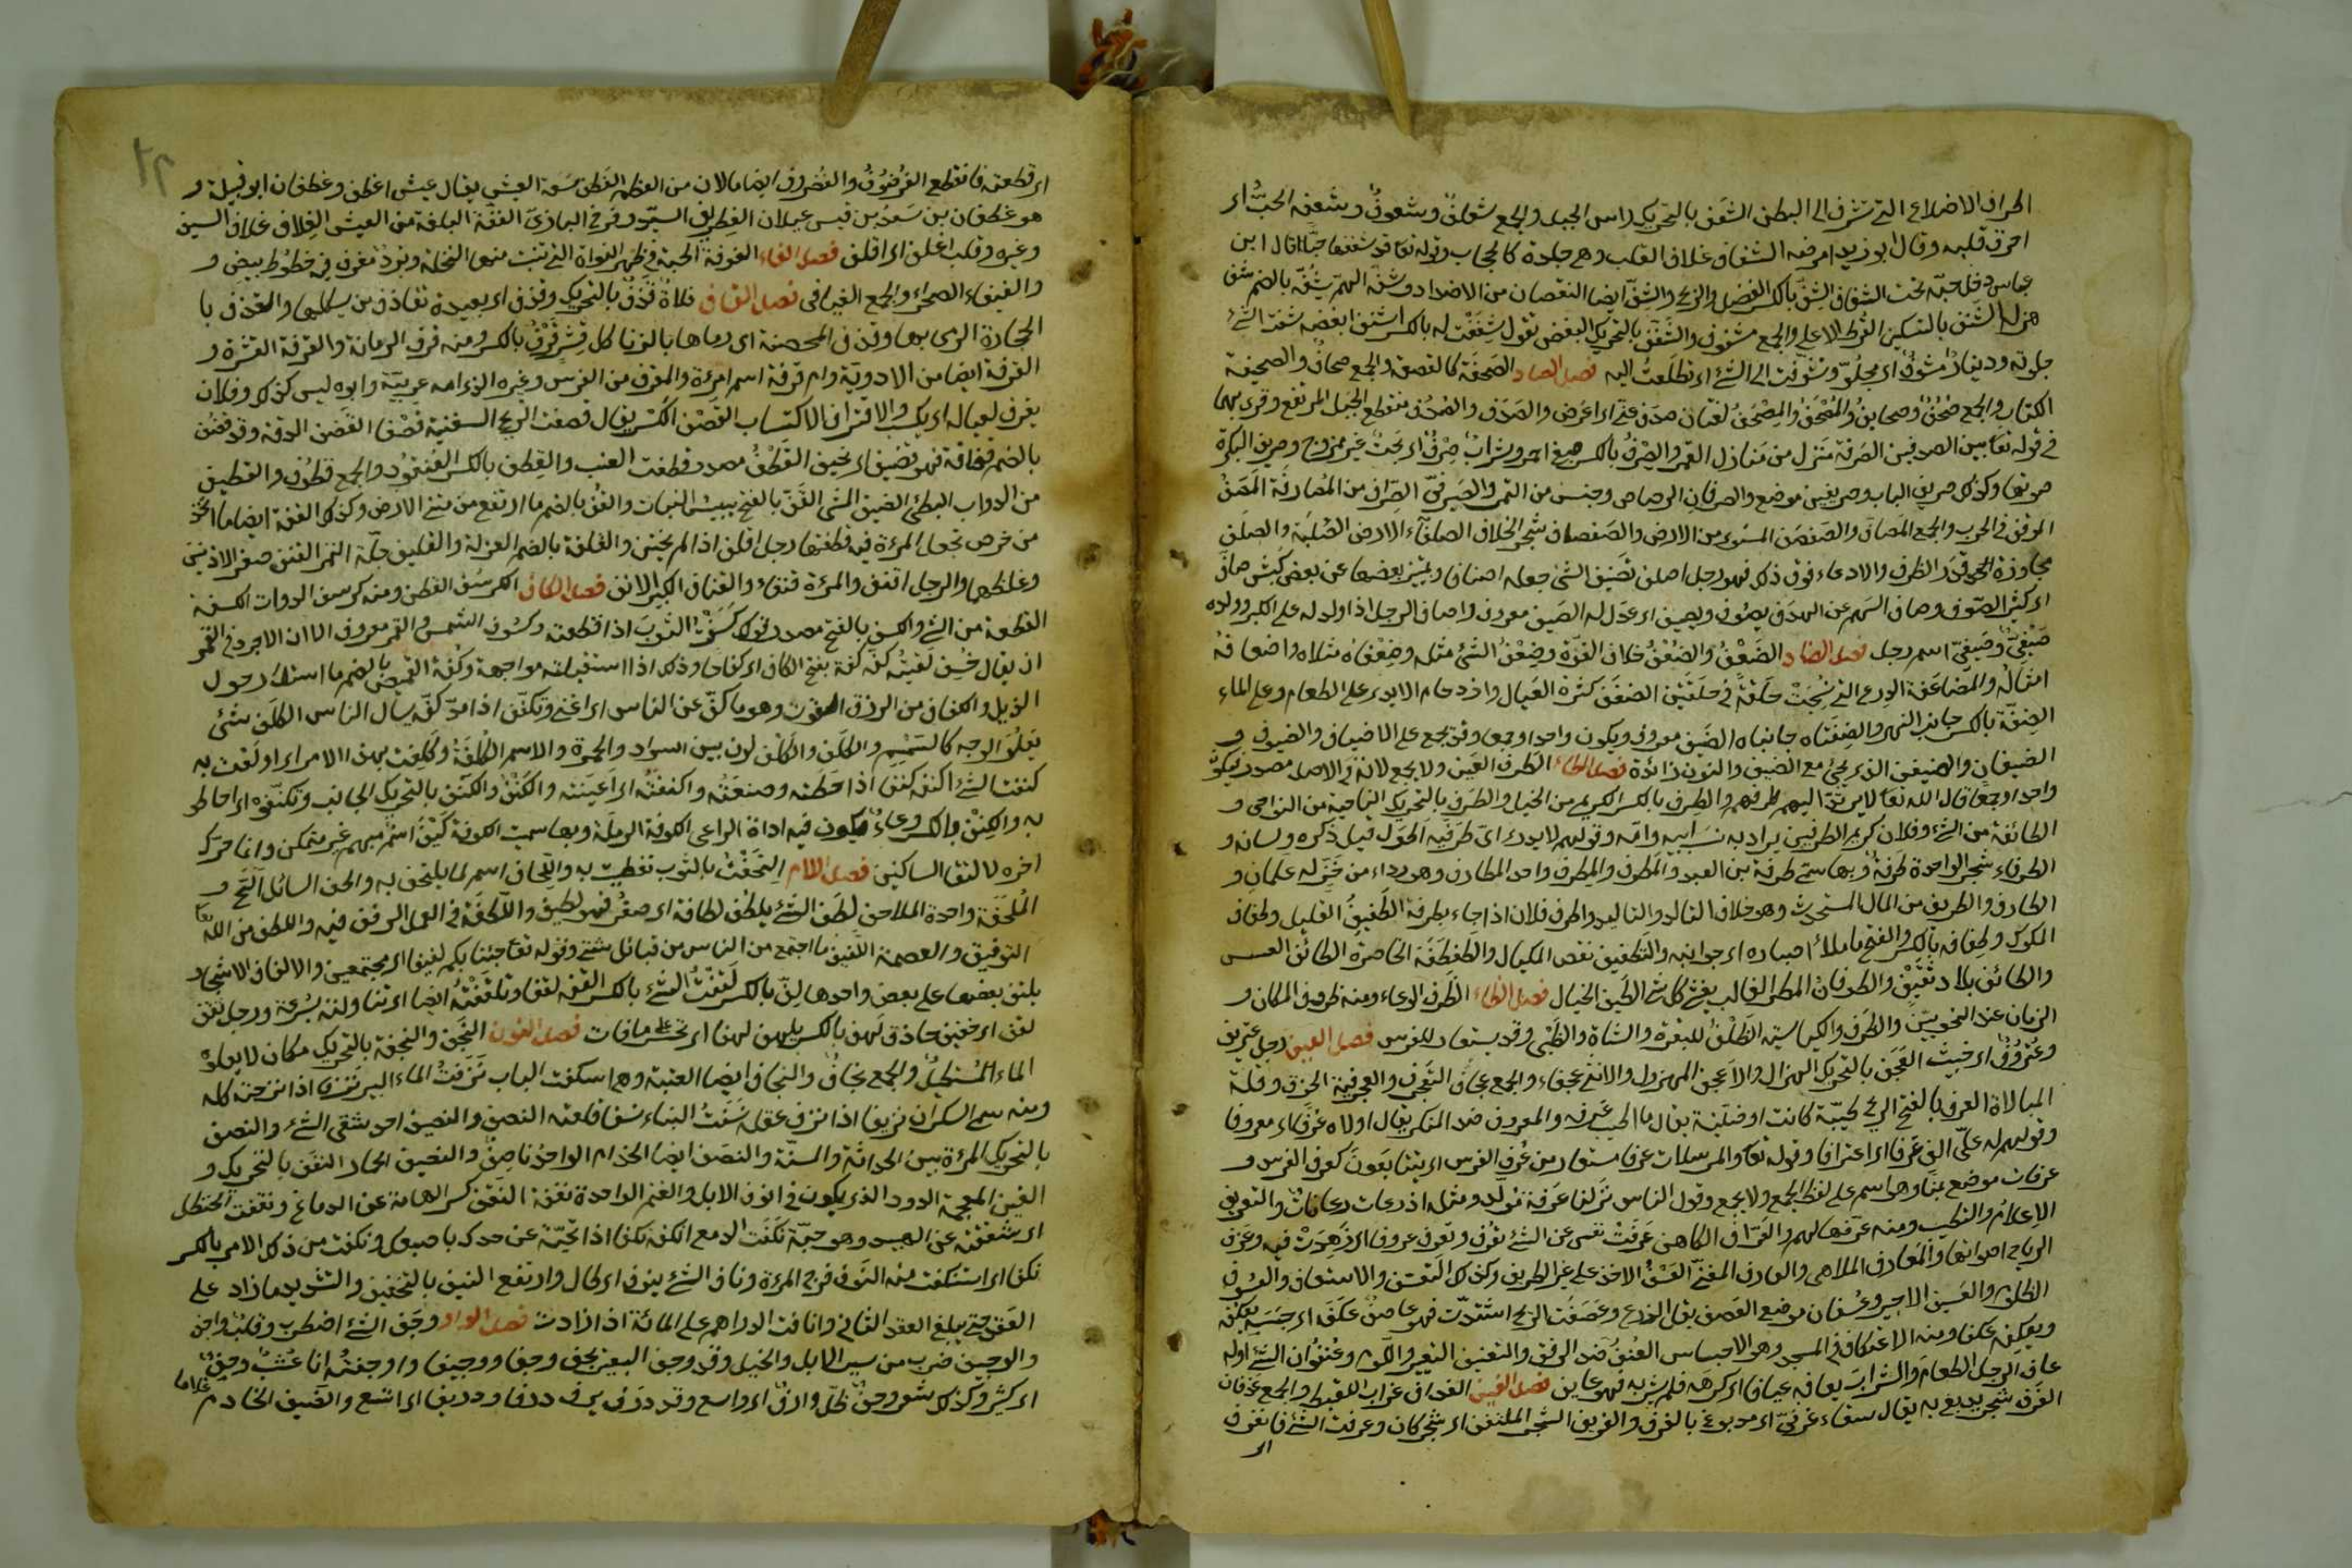 اطراف الاضلاع التي تشرف الى البطن الشعف بالتحريك راس الجبل والجمع شعاف وشعوف وشعفه الحب اى
احرق قلبه وقال ابو زيد امرضه الشغاف غلاف القلب وهي جلدة كالحجاب وقوله تعا قد شغفها حبا قال ابن
عباس دخل حبه تحت الشغاف الشف بالكسر الفضل والربح والشف ايضا النقصان من الاضداد وشفه الهم يشفه بالضم شفا
هزله الشنف بالتسكين القرط الاعلى والجمع شنوف والشنف بالتحريك البغض تقول شنفت له بالكسر اشنف ابغضه شفت الشئ
جلوته ودينار مشوف اى مجلو وتشوفت الى الشئ اى تطلعت اليه فصل الصاد الصحفة كالقصعة والجمع صحاف والصحيفة
الكتاب والجمع صحف وصحايف والمصحف والمصحف لغتان صدف عنه اى اعرض والصدف والصدف منقطع الجبل المرتفع وقرئ بهما
في قوله تعا بين الصدفين الصرفة منزل من منازل القمر والصرف بالكسر صبغ احمر وشراب صرف اى بحت غير ممزوج وصريف البكرة
صوتها وكذلك صريف الباب وصريفين موضع والصرفان الرصاص وجنس من التمر والصيرفي الصراف من المصارفة المصف
الموقف في الحرب والجمع المصاف والصفصف المستوى من الارض والصفصاف شجر الخلاف الصلفاء الارض الصلبة والصلف
مجاوزة الحد قدر الظرف والادعاء فوق ذلك فهو رجل صلف تصنيف الشئ جعله اصنافا وتمييز بعضها عن بعض كبش صاف
اى كثير الصوف وصاف السهم عن الهدف يصوف ويصيف اى عدل له الصيف معروف واصاف الرجل اذا ولد له على الكبر وولده
صيفي وصيفي اسم رجل فصل الضاد الضعف والضعف خلاف القوة وضعف الشئ مثله وضعفاه مثلاه واضعافه
امثاله والمضاعفة الدرع التي نسجت حلقة في حلقتين الضفف كثرة العيال وازدحام الايدى على الطعام وعلى الماء
الضفة بالكسر جانب النهر والضفتاه جانباه الضيف معروف ويكون واحدا وجمعا وقد يجمع على الاضياف والضيوف و
الضيفان والضيفن الذى يجئ مع الضيف والنون زائدة فصل الطاء الطرف العين ولا يجمع لانه في الاصل مصدر فيكون
واحدا وجمعا قال الله تعا لا يرتد اليهم طرفهم والطرف بالكسر الكريم من الخيل والطرف بالتحريك الناحية من النواحى و
الطائفة من الشئ وفلان كريم الطرفين يراد به نسب ابيه وامه وقولهم لا يدرى اى طرفيه اطول قيل ذكره ولسانه و
الطرفاء شجر الواحدة طرفة وبها سمى طرفة بن العبد والمطرف والمطرف واحد المطارف وهو رداء من خز له علمان و
الطارف والطريف من المال المستحدث وهو خلاف التالد والتاليد واطرف فلان اذا جاء بطرفة الطفيف القليل وطفاف
المكوك وطفافه بالكسر والفتح ما ملأ اصباره اى جوانبه والتطفيف نقص المكيال والطفطفة الخاصرة الطائف العسس
والطائف بلاد ثقيف والطوفان المطر الغالب يغشى كل شئ الطيف الخيال فصل الظاء الظرف الوعاء ومنه ظروف المكان و
الزمان عند النحويين والظرف والكياسة الظلف للبقرة والشاة والظبى وقد يستعار للفرس فصل العين رجل عتريف
وعتروف اى خبيث العجف بالتحريك الهزال والاعجف المهزول والانثى عجفاء والجمع عجاف التعجرف والعجرفية الخرق وقلة
المبالاة العرف بالفتح الريح طيبة كانت او منتنة يقال ما اطيب عرفه والمعروف ضد المنكر يقال اولاه عرفا اى معروفا
وقولهم له على الف عرفا اى اعترافا وقوله تعا والمرسلات عرفا مستعار من عرف الفرس اى يتتابعون كعرف الفرس و
عرفات موضع بمنا وهى اسم على لفظ الجمع ولا يجمع وقول الناس نزلنا عرفة مولد ومثله اذرعات وعانات والتعريف
الاعلام والتطيب ومنه عرفها لهم والعراف الكاهن عزفت نفسى عن الشئ تعزف وتعزف عزوفا اى زهدت فيه وعزف
الرياح اصواتها والمعازف الملاهى والعازف المغنى العسف الاخذ على غير الطريق وكذلك التعسف والاعتساف والعسوف
الظلوم والعسيف الاجير وعسفان موضع العصف بقل الزرع وعصفت الريح اشتدت فهى عاصف عكفه اى حبسه يعكفه
ويعكفه عكفا ومنه الاعتكاف في المسجد وهو الاحتباس العنف ضد الرفق والتعنيف التعيير واللوم وعنفوان الشئ اوله
عاف الرجل الطعام والشراب يعافه عيافا اى كرهه فلم يشربه فهو عايف فصل الغين الغداف غراب القيظ والجمع غدفان
الغرف شجر يدبغ به يقال سقاء غرفى اى مدبوغ بالغرف والغريف الشجر الملتف اى شجر كان وغرفت الشئ فانغرف
اى
اى قطعته فانقطع الغرضوف والغضروف ايضا ما لان من العظم الغطف سعة العيش يقال عيش اغطف وغطفان ابو قبيلة و
هو غطفان بن سعد بن قيس عيلان الغطريف السيد وفرخ البازى الغفة البلغة من العيش الغلاف غلاف السيف
وغيره وقلب اغلف اى اقلف فصل الفاء الفوفة الحبة في ظهر النواة التي تنبت منها النخلة وبرد مفوف فيه خطوط بيض و
والفيفاء الصحراء والجمع الفيافى فصل القاف فلاة قذف بالتحريك وقذف اى بعيدة تقاذف من يسلكها والقذف با
الحجارة الرمى بها وقذف المحصنة اى رماها بالزنا كل قشر قرف بالكسر ومنه قرف الرمانة والقرفة القشرة و
القرفة ايضا من الادوية وام قرفة اسم امرءة والمقرف من الفرس وغيره الذى امه عربية وابوه ليس كذلك وفلان
يقرف لعياله اى يكسب والاقتراف الاكتساب القصف الكسر يقال قصفت الريح السفينة قصفا القضف الدقة وقد قضف
بالضم قضافة فهو قضيف اى نحيف القطف مصدر قطفت العنب والقطف بالكسر العنقود والجمع قطوف والقطيف
من الدواب البطئ الضيق المشى القف بالفتح يبيس النبات والقف بالضم ما ارتفع من متن الارض وكذلك القفة ايضا ما اتخذ
من خوص تجعل المرءة فيه قطنها رجل اقلف اذا لم يختن والقلفة بالضم الغرلة والقليف جلة التمر القنف صغر الاذنين
وغلظهما والرجل اقنف والمرءة قنفاء والقناف الكبير الانف فصل الكاف الكرسف القطن ومنه كرسف الدوات الكسفة
القطعة من الشئ والكسف بالفتح مصدر قولك كسفت الثوب اذا قطعته وكسوف الشمس والقمر معروف الا ان الاجود في القمر
ان يقال خسف لقيته كفة كفة بفتح الكاف اى كفاحا وذلك اذا استقبلته مواجهة وكفة القميص بالضم ما استدار حول
الذيل والكفاف من الرزق القوت وهو ما كف عن الناس اى اغنى وتكفف اذا مد كفه يسأل الناس الكلف شئ
يعلو الوجه كالسمسم والكلف والكلف لون بين السواد والحمرة والاسم الكلفة وكلفت بهذا الامر اى اولعت به
كنفت الشئ اكنفه كنفا اذا حفظته وصنعته واكنفته اى اعينته والكنف والكنف بالتحريك الجانب وتكنفوه اى احاطو
به والكنف بالكسر وعاء يكون فيه اداة الراعى الكوفة الرملة وبها سميت الكوفة كيف اسم مبهم غير متمكن وانما حرك
اخره لالتقا الساكنين فصل اللام التحفت بالثوب تغطيت به واللحاف اسم لما يلتحف به والحف السائل الح و
الملحفة واحدة الملاحف لطف الشئ يلطف لطافة اى صغر فهو لطيف واللطف في العمل الرفق فيه واللطف من الله تعا
التوفيق والعصمة اللفيف ما اجتمع من الناس من قبائل شتى وقوله تعا جئنا بكم لفيفا اى مجتمعين والالفاف الاشجار
يلتف بعضها على بعض واحدها لف بالكسر لقفت الشئ بالكسر القفه لقفا وتلقفته ايضا اى تناولته بسرعة ورجل ثقف
لقف اى خفيف حاذق لهف بالكسر يلهف لهفا اى تحسر على ما فات فصل النون النجف والنجفة بالتحريك مكان لا يعلوه
الماء المستطيل والجمع نجاف والنجاف ايضا العتبة وهى اسكفة الباب نزفت الماء البير نزفا اذا نزحته كله
ومنه سمى السكران نزيفا اذا نزف عقله نسفت البناء نسفا قلعته النصف والنصيف احد شقى الشئ والنصف
بالتحريك المرءة بين الحداثة والمسنة والنصف ايضا الخدام الواحد ناصف والنصيف الخمار النغف بالتحريك و
الغين المعجمة الدود الذى يكون في انوف الابل والغنم الواحدة نغفة النقف كسر الهامة عن الدماغ ونقفت الحنظل
اى شققته عن الهبيد وهو حبه نكفت الدمع انكفه نكفا اذا نحيته عن خدك باصبعك ونكفت من ذلك الامر بالكسر
نكفا اى استنكفت منه النوف فرج المرءة وناف الشئ ينوف اى طال وارتفع النيف بالتخفيف والتشديد ما زاد على
العقد حتى يبلغ العقد الثانى وانافت الدراهم على المائة اذا زادت فصل الواو وجف الشئ اضطرب وقلب واجف
والوجيف ضرب من سير الابل والخيل وقد وجف البعير يجف وجفا ووجيفا واوجفته انا عشب وحف
اى كثير وكذلك شعر وحف ظل وارف اى واسع وقد ورف يرف ورفا ووريفا اى اتسع والوصيف الخادم غلاما